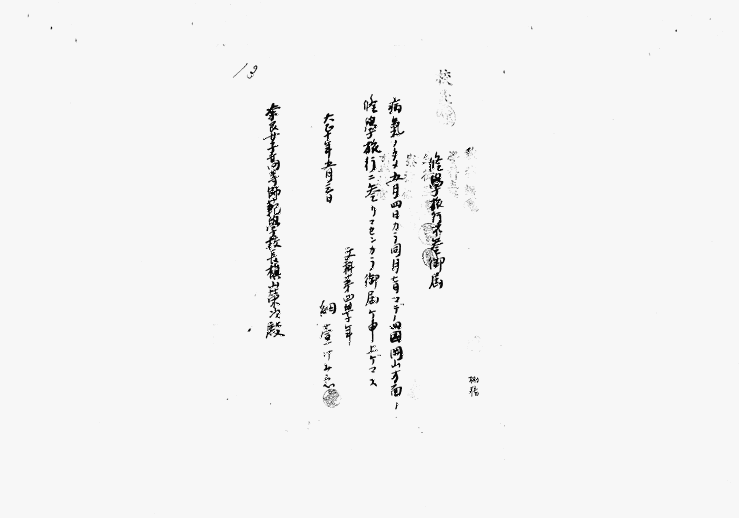 修學旅行不參御届
病氣ノタメ五月四日カラ同月七日マデ四國岡山方面ノ
修學旅行ニ參リマセンカラ御届ケ申上ゲマス
大正十年五月三日
文科第四學年
奈良女子高等師範學校長槇山榮次殿